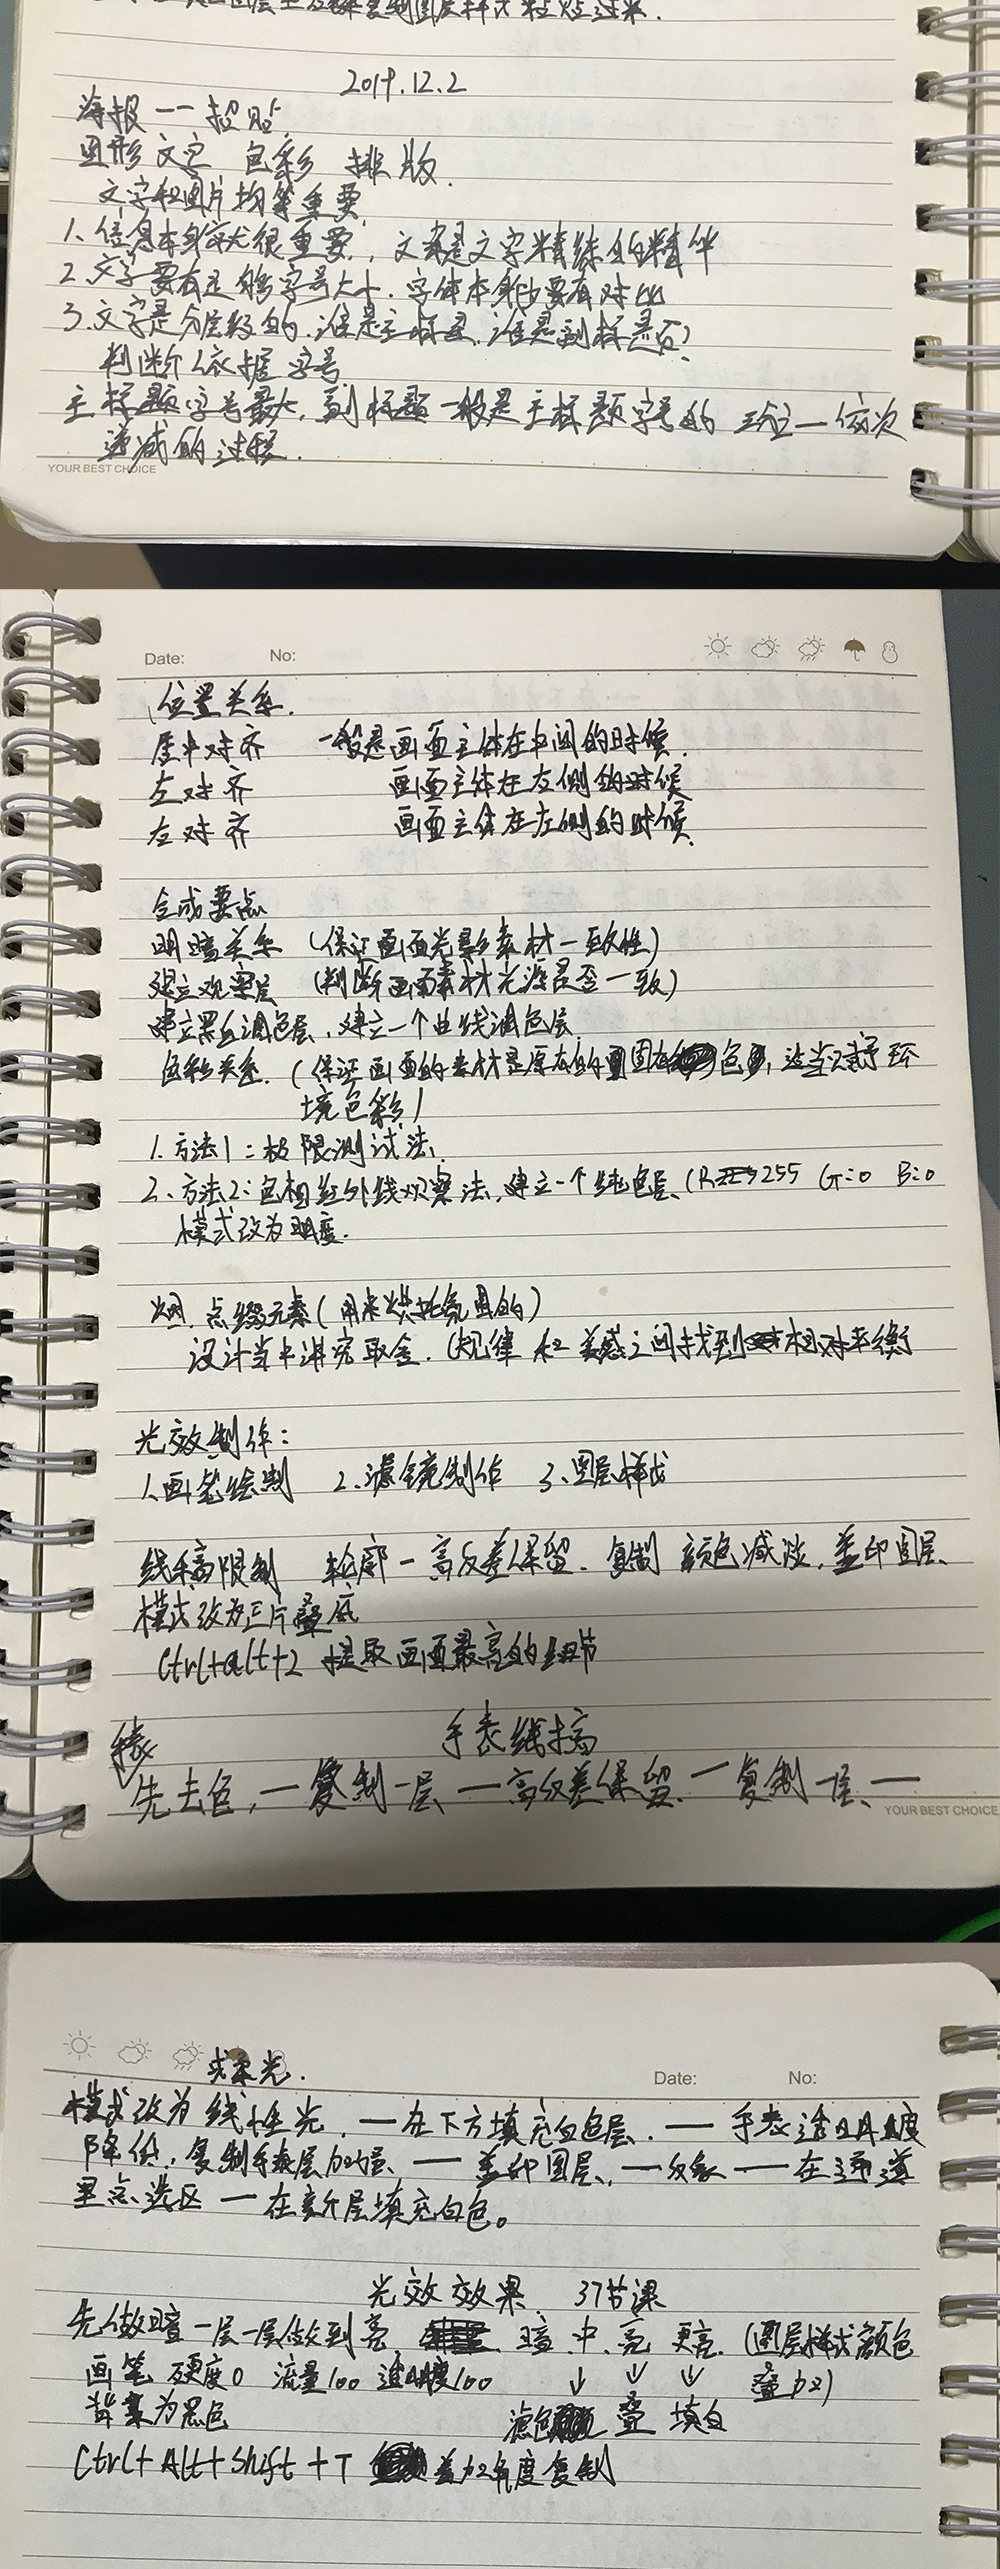 复制图层样式粘贴过来.
2019.12.2
海报一一招贴
图形 文字 色彩 排版.
文字和图片均等重要
1、信息本身就很重要,文案是文字精练的精华
2、文字要有足够字号大小.字体本身要有对比
3、文字是分层级的.谁是主标题,谁是副标题?
判断依据 字号.
主标题字号最大,副标题一般是主标题字号的 三分之一依次
递减的过程.
YOUR BEST CHOICE
Date: No:
位置关系.
居中对齐 一般是画面主体在中间的时候.
左对齐 画面主体在左侧的时候
右对齐 画面主体在左侧的时候
合成要点
明暗关系 (保证画面光影素材一致性)
建立观察层 (判断画面素材光源是否一致)
建立黑白调色层,建立一个曲线调色层
色彩关系.(保证画面的素材是原有的固有色,适当赋予环
境色彩)
1.方法1:极限测试法,
2、方法2:色相红外线观察法,建立一个纯色层(R 255 G:0 B:0
模式改为明度.
点缀元素(用来烘托氛围的)
设计当中讲究取舍.(规律和美感之间找到相对平衡
光效制作:
1、画笔绘制 2、滤镜制作 3、图层样式
线稿限制 轮廓一高反差保留.复制 颜色减淡,盖印图层、
模式改为正片叠底
Ctrl+alt+2 提取画面最高的细节
手表
手表线搞
先去色,一复制一层一高反差保留.一复制一层、一
YOUR BEST CHOICE
或柔光.
Date: No:
模式改为线性光,一在下方填充白色层.一手表透明度
降低,复制手表层加强、一盖印图层、一反象一在通道
里点选区一在新层填充白色。
光效效果 37节课
先做暗一层一层做到亮 暗 中 亮 更亮.(图层样式颜色
叠加)
画笔 硬度0 流量100 透明度100 ↓ ↓ ↓
背景为黑色 滤色 叠 填白
Ctrl+Alt+Shift+T 叠加角度复制